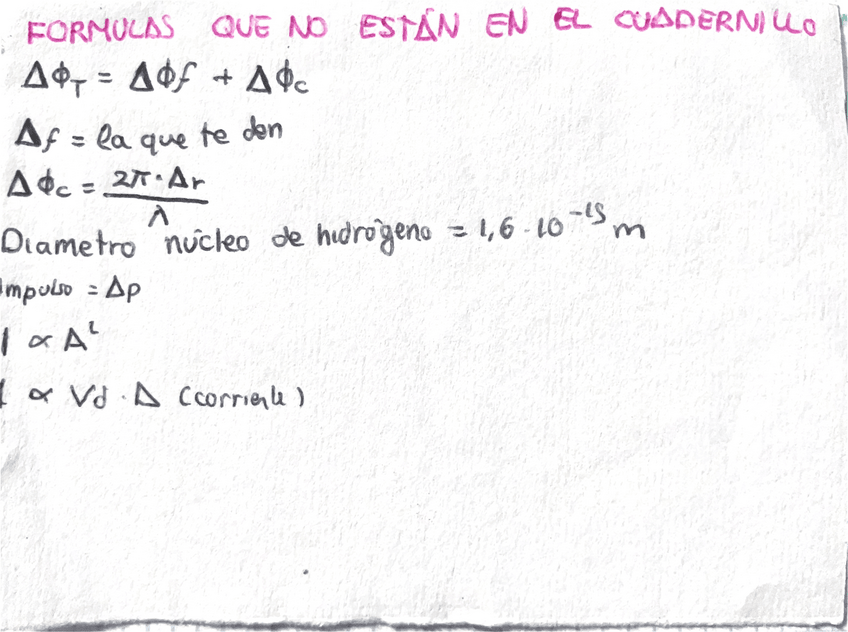 FORMULAS QUE NO ESTÁN EN EL CUADERNILLO
Δϕ_T = Δϕf + Δϕc
Δf = la que te den
Δϕc = 2π·Δr / λ
Diametro núcleo de hidrógeno = 1,6 · 10^-15 m
Impulso = Δp
I ∝ A²
I ∝ Vd · A (corriente)